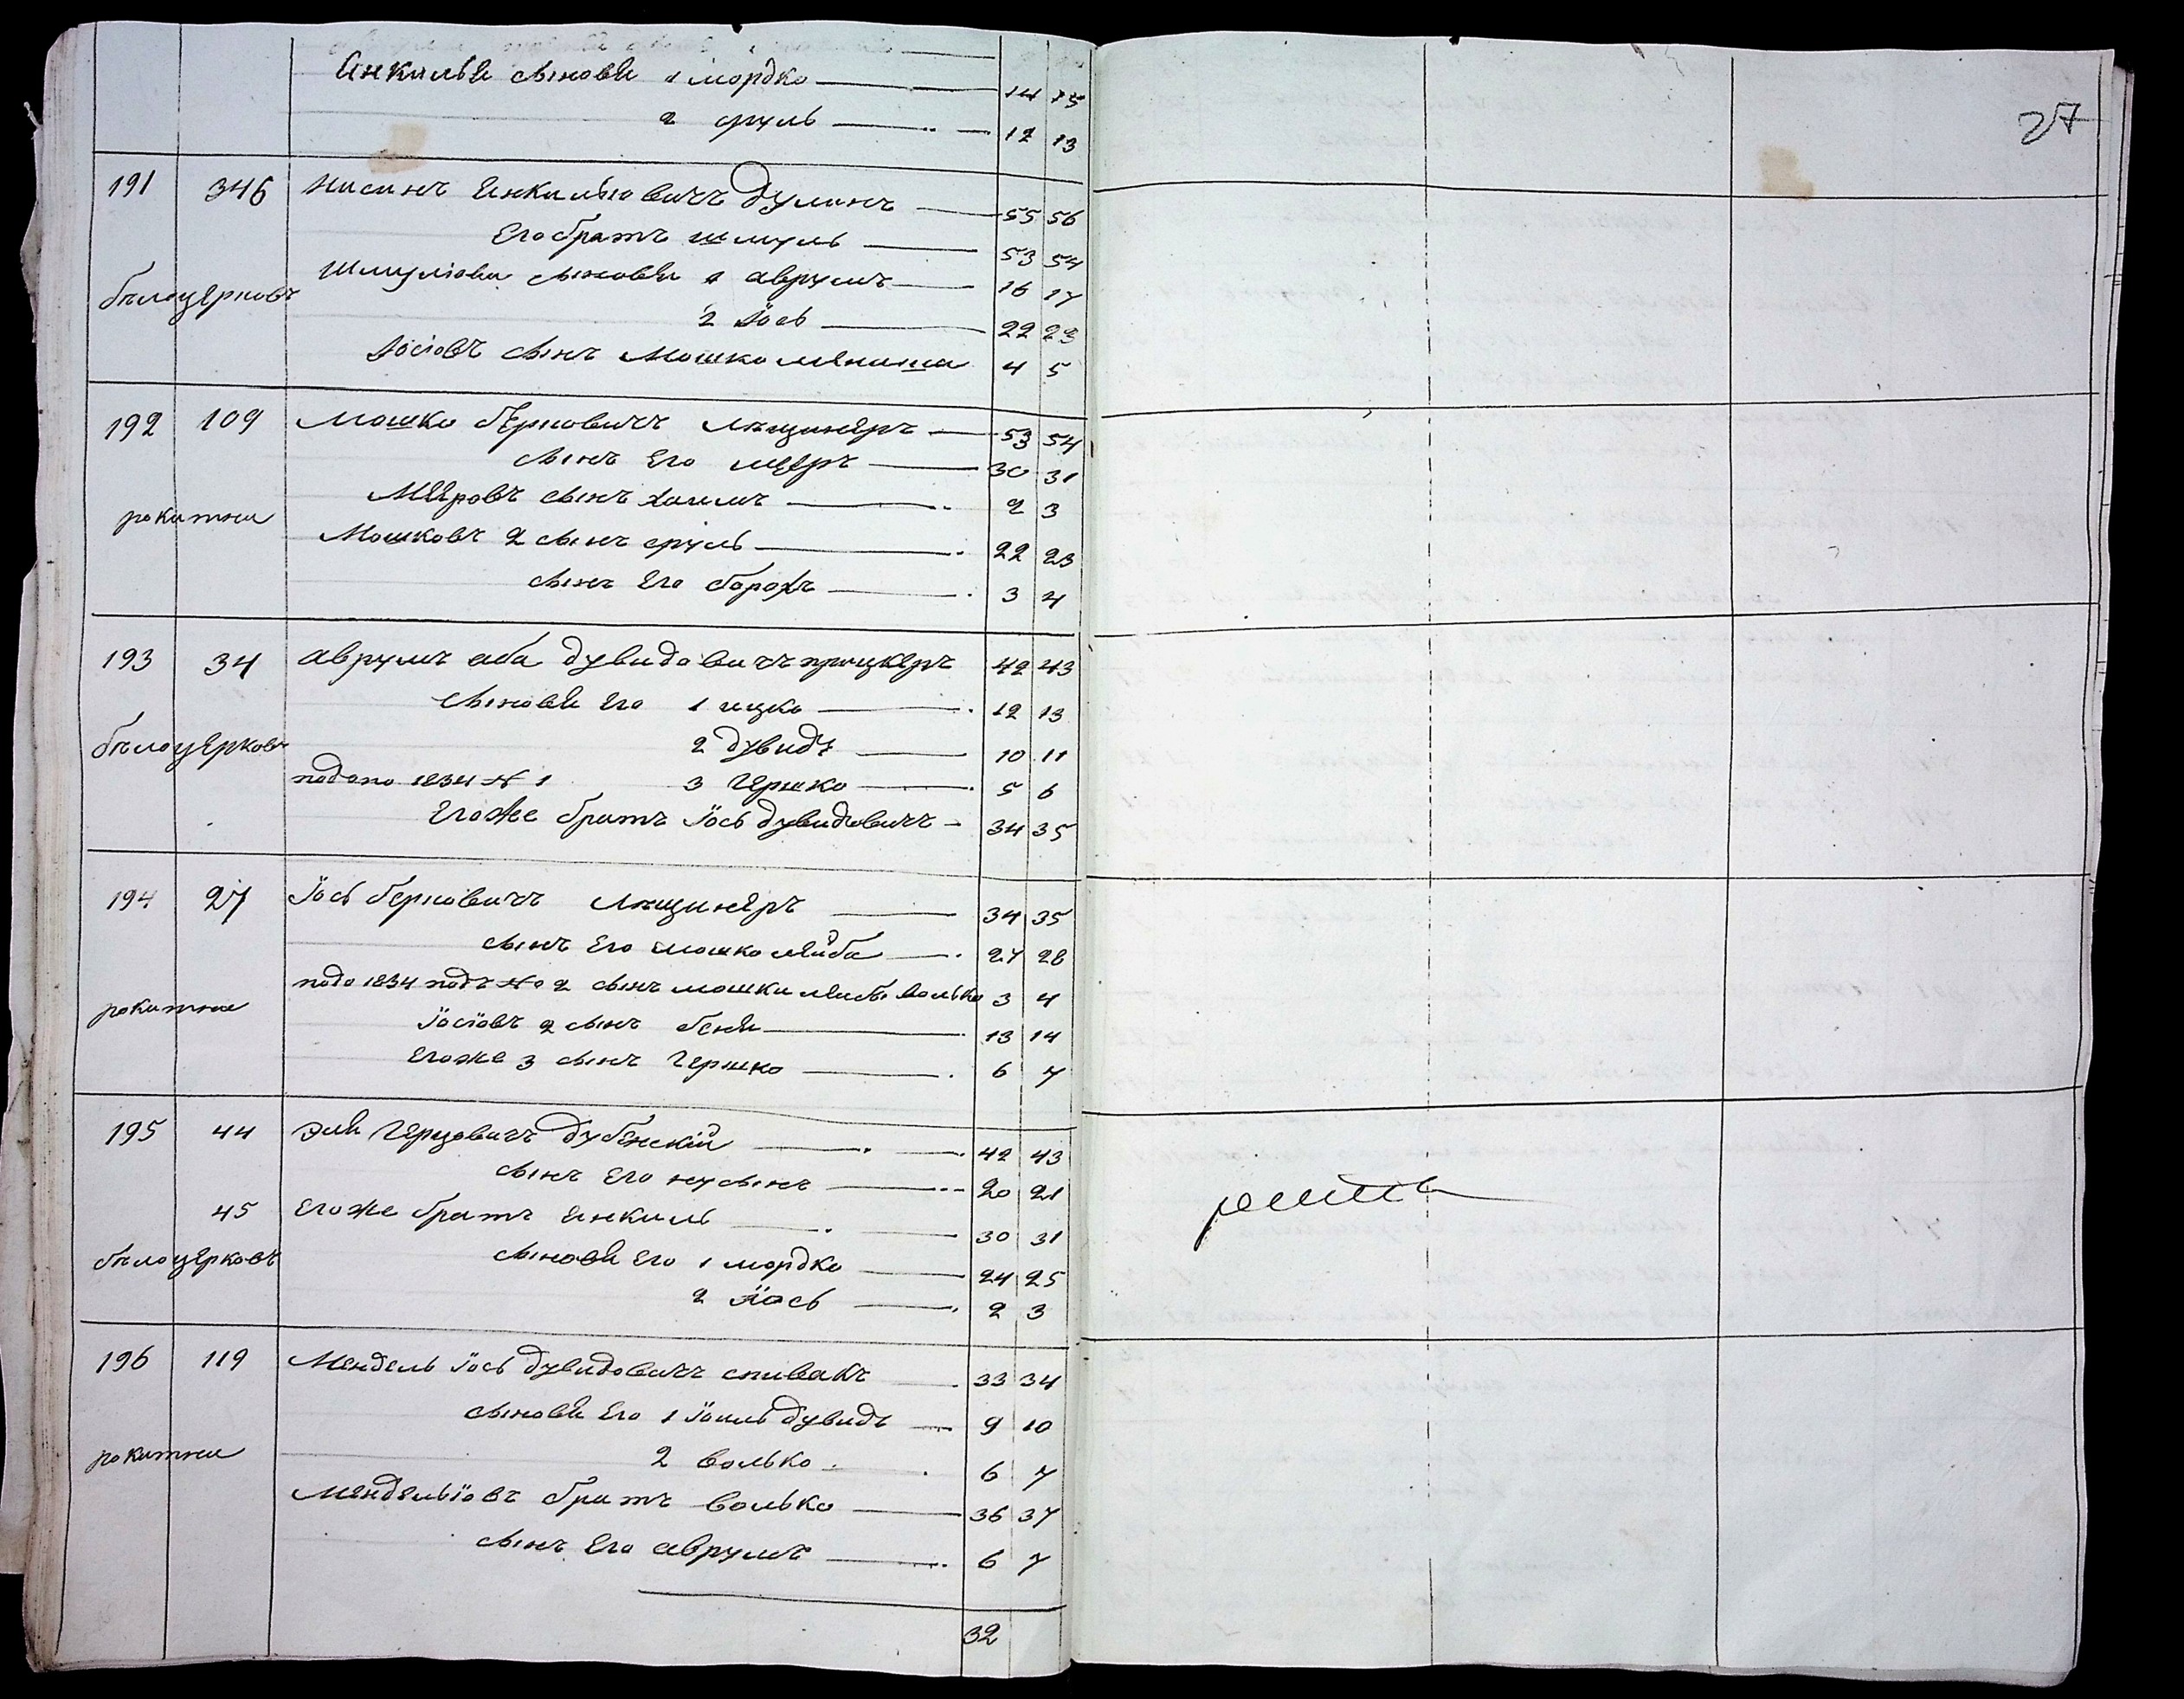 Янкилья сыновья 1 мордко 14 15
2 сруль 12 13
27
191 346 Нисинъ Янкильювичъ Дулинъ 55 56
Его братъ шмуль 53 54
Шмулiовы сыновья 1 аврумъ 16 17
бѣлоцерковъ
2 Iось 22 23
Iосiовъ сынъ Мошко 4 5
192 109 Мошко берковичъ Лящинеръ 53 54
сынъ Его меэръ 30 31
Мееровъ сынъ хаимъ 2 3
рокитни
Мошковъ 2 сынъ сруль 22 23
сынъ Его борохъ 3 4
193 34 аврумъ аба дувидовичъ прицкеръ 42 43
сыновья Его 1 ицко 12 13
бѣлоцерковъ 2 дувидъ 10 11
подано 1834 № 1 3 Гершко 5 6
Егоже братъ Iось дувидовичъ 34 35
194 27 Iось берковичъ Лящинеръ 34 35
сынъ Его мошко лейба 27 28
подо 1834 подъ № 2 сынъ мошки лейбы волько 3 4
рокитни
Iосiовъ 2 сынъ беня 13 14
Егоже 3 сынъ Гершко 6 7
195 44 Эля Герцовичъ дубенскiй 42 43
сынъ Его нусынъ 20 21
45 Егоже братъ Янкиль 30 31
бѣлоцерковъ сыновья Его 1 мордко 24 25
2 Iось 2 3
196 119 Мендель Iось дувидовичъ спивакъ 33 34
сыновья Его 1 Iоиль дувидъ 9 10
рокитни 2 волько 6 7
Мендельiовъ братъ волько 36 37
сынъ Его аврумъ 6 7
32